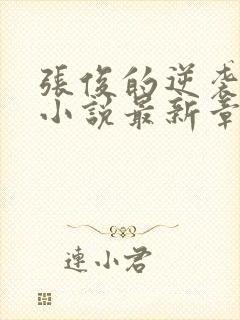 張俊的逆袭
小說最新章
連小君